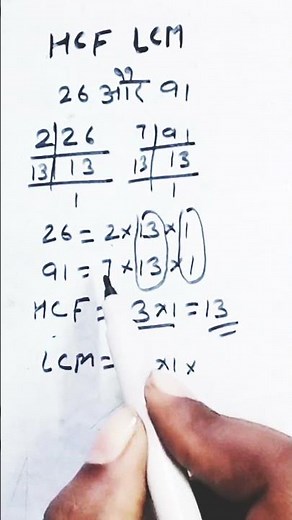 HCF LCM
26 और 91
2 26 7 91
13 13 13 13
1 1
26 = 2 × 13 × 1
91 = 7 × 13 × 1
HCF = 3 × 1 = 13
LCM = × 1 ×